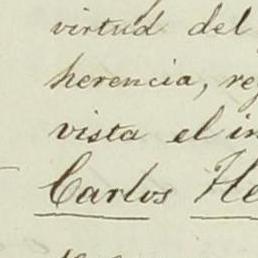 virtud del
herencia, re
vista el in
Carlos He